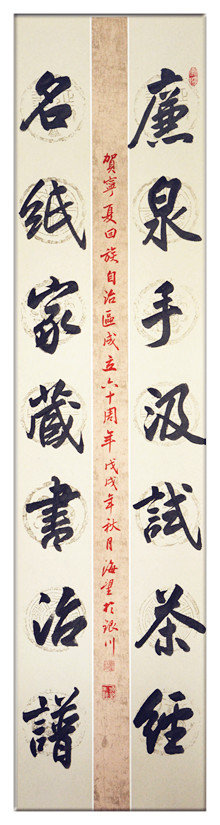 廉泉手汲試茶經
賀寧夏回族自治區成立六十周年戊戌年秋月海望於銀川
名紙家藏書治譜